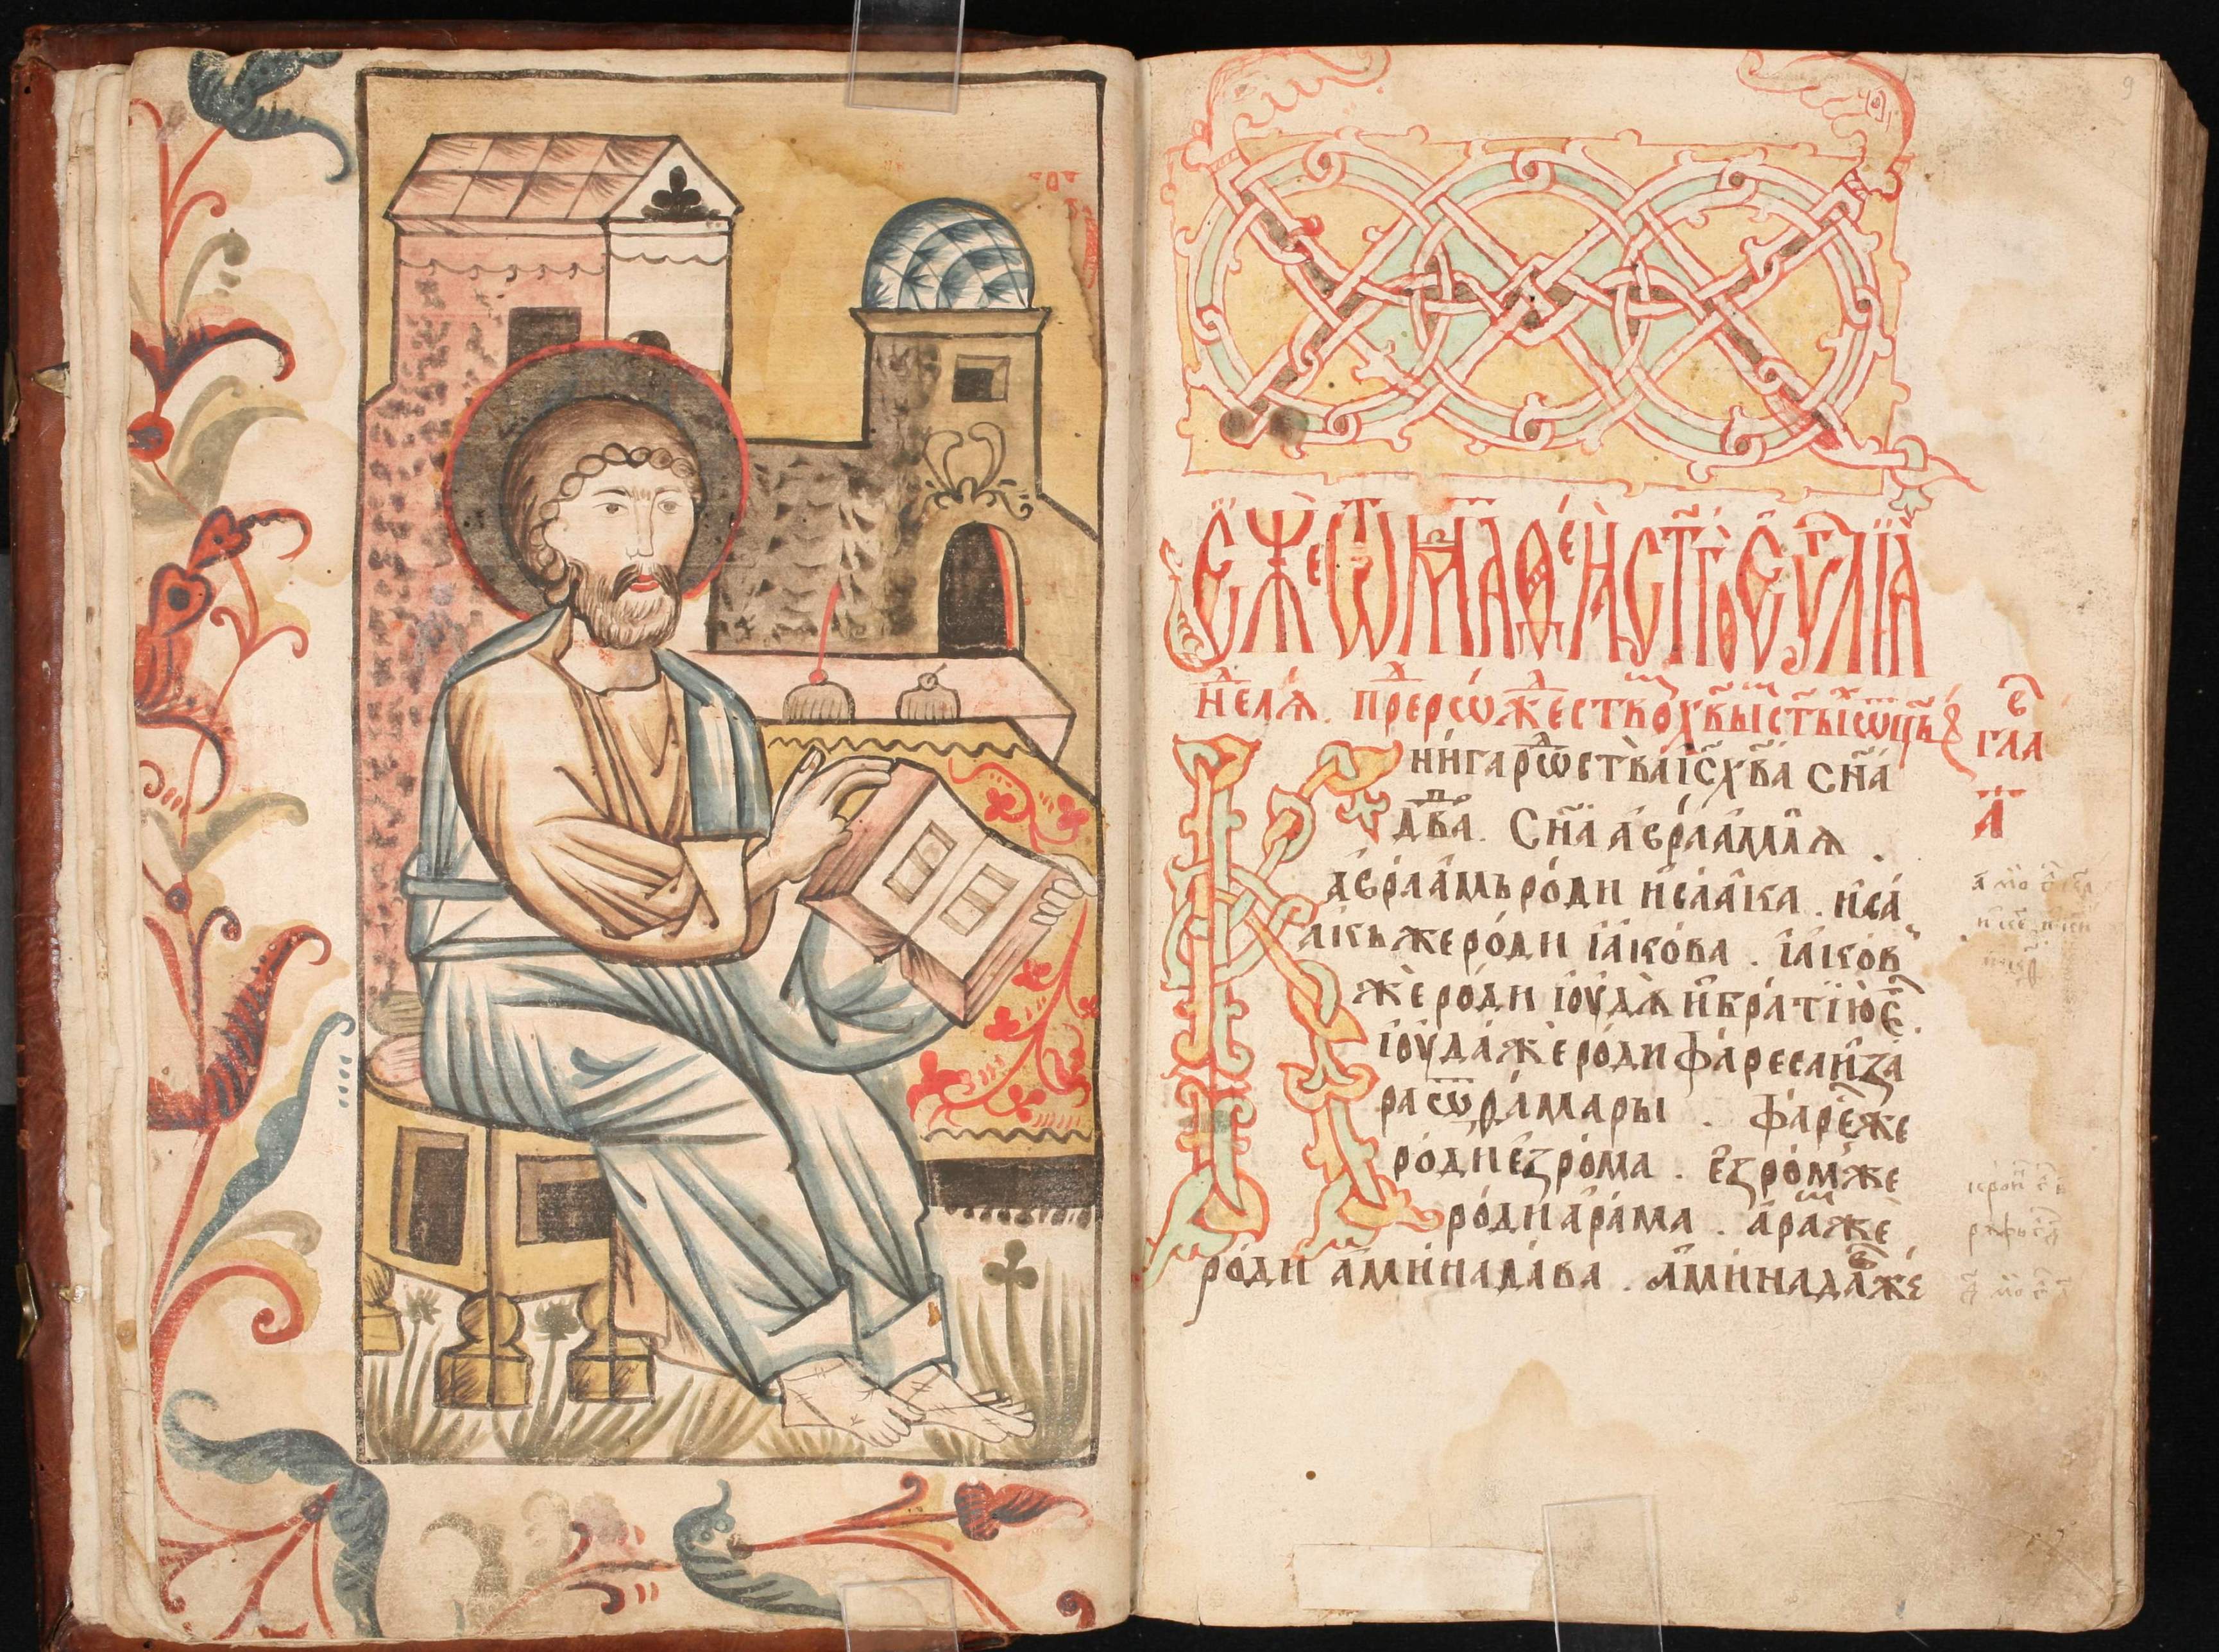 Є҆́же ѿ маѳе́а ст҃го є҆у҃лїа
Нⷣелѧ. прⷣе рѡжⷣество́ хв҃ы ст҃ы ѿц҃ъ
гла
а҃
Кни́га рѡⷣства і҆с х҃ва сн҃а
дв҃ⷣа. Сн҃а а҆враа́млѧ.
а҆враа́мъ ро́ди и҆саа́ка. и҆саа́
акъ же ро́ди і҆а́кова. і҆а́ков
же ро́ди і҆оу́дѫ и҆ бра́тїю є҆гⷪ.
і҆оу́да же ро́ди фа́реса и҆ за́
ра ѿ ѳа́мары. фаре́ же
ро́ди є҆зро́ма. є҆зро́м же
ро́ди а҆ра́ма. а҆раⷨ же
ро́ди а҆мина́дава. а҆мина́даⷡ же
9